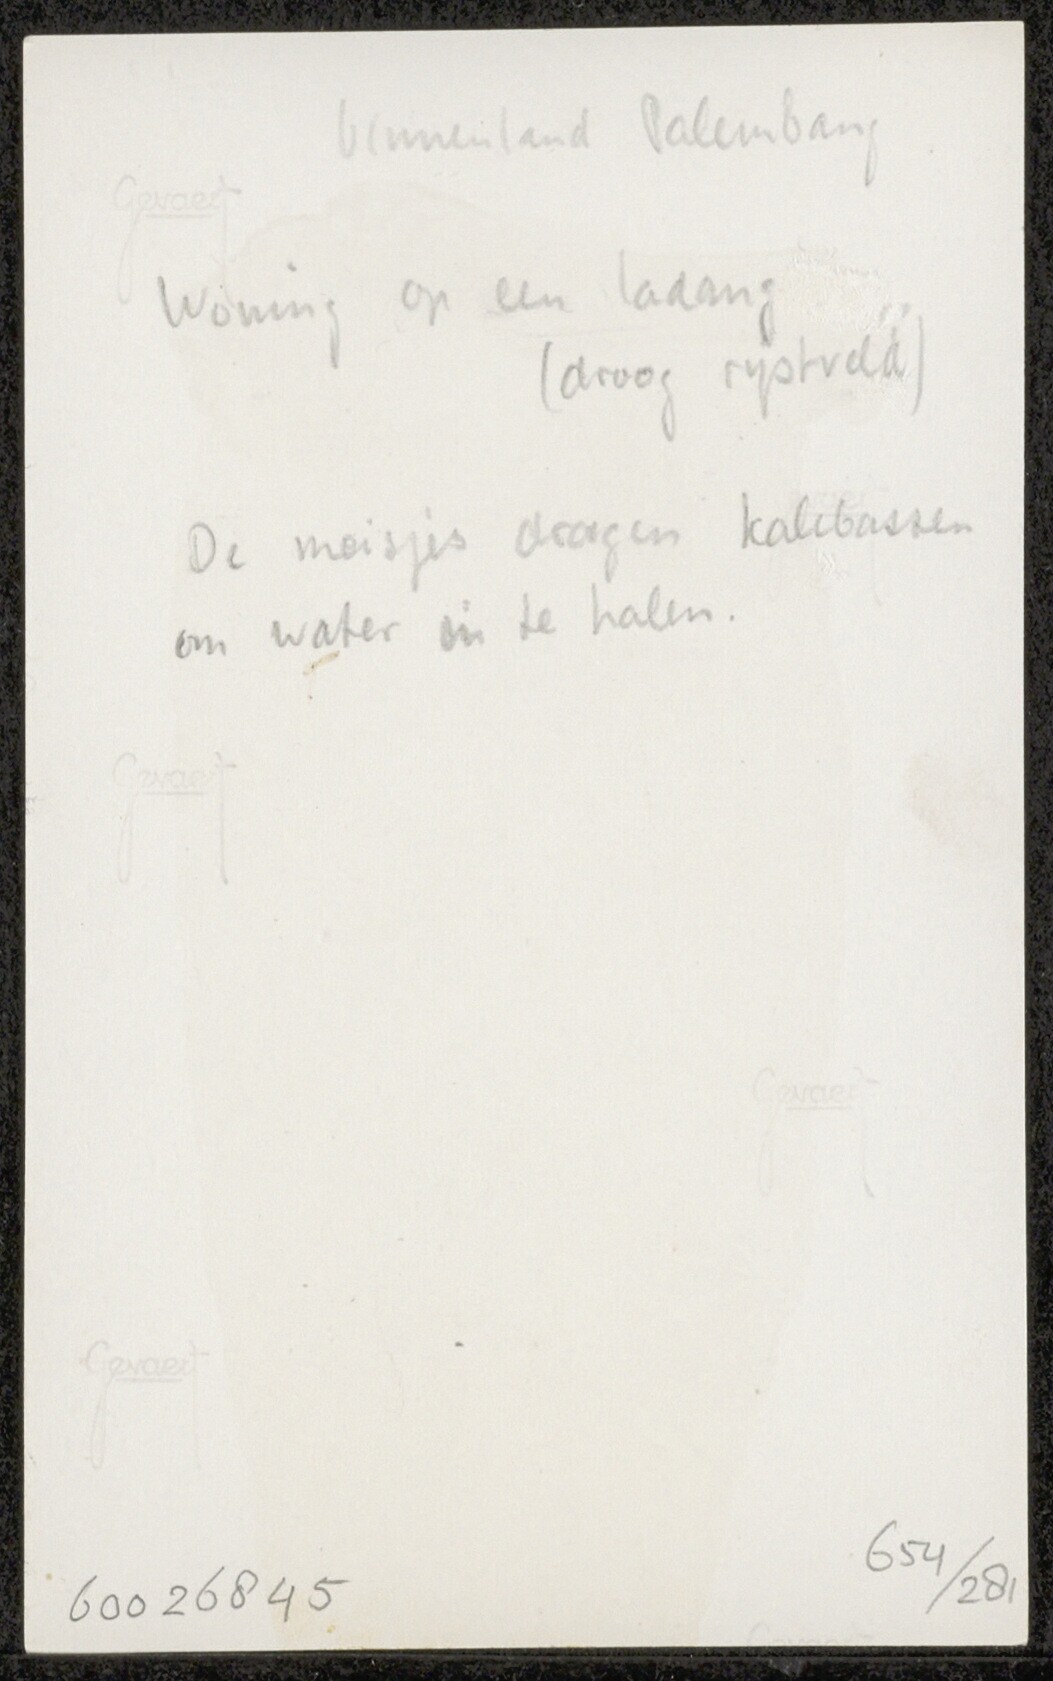 binnenland Palembang
Gevaert
Woning op een ladang
(droog rijstveld)
De meisjes dragen kalebassen
om water in te halen.
Gevaert
Gevaert
Gevaert
60026845
654/281